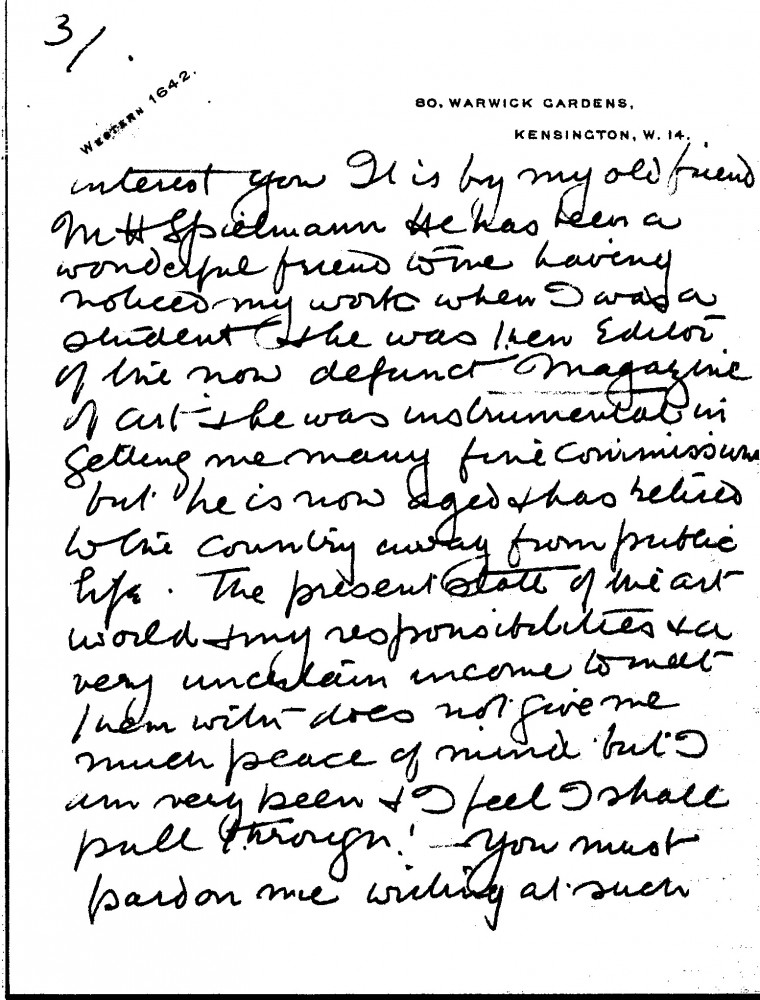 3/.
WESTERN 1642.
80, WARWICK GARDENS,
KENSINGTON, W. 14.
interest you It is by my old friend
M H Spielmann He has been a
wonderful friend to me having
noticed my work when I was a
student & he was then Editor
of the now defunct Magazine
of Art & he was instrumental in
getting me many fine commissions
but he is now aged & has retired
to the country away from public
life. The present state of the art
world & my responsibilities & a
very uncertain income to meet
them with does not give me
much peace of mind but I
am very keen & I feel I shall
pull through! — You must
pardon me writing at such